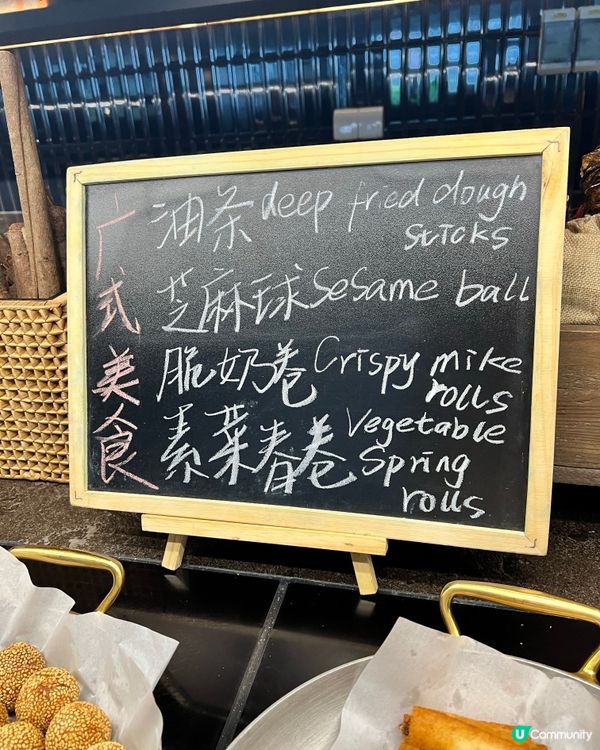 广式美食
油条 deep fried dough
sticks
芝麻球 Sesame ball
脆奶卷 Crispy mike
rolls
素菜春卷 Vegetable
Spring
rolls
U Community